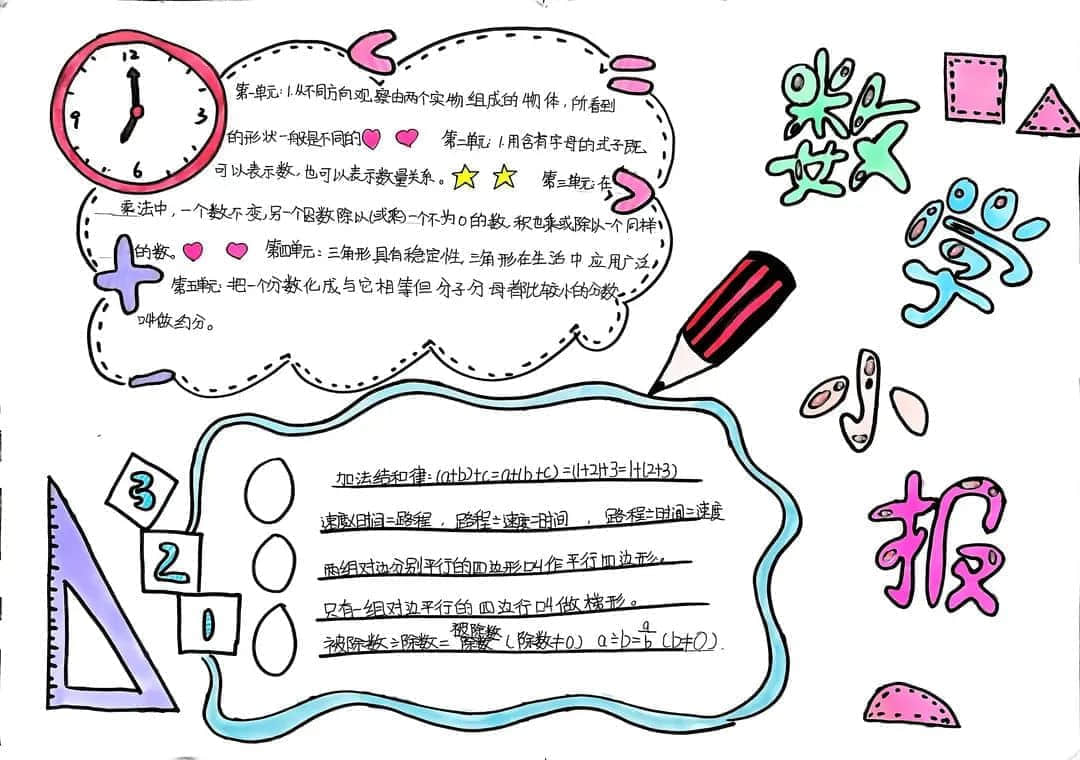 12
3
6
9
第一单元:1.从不同方向观察由两个实物组成的物体,所看到
的形状一般是不同的 第二单元:1.用含有字母的式子既
可以表示数,也可以表示数量关系。 第三单元:在
乘法中,一个数不变,另一个因数除以(或乘)一个不为0的数,积也乘或除以一个同样
的数。 第四单元:三角形具有稳定性,三角形在生活中应用广泛
第五单元:把一个分数化成与它相等但分子分母都比较小的分数
叫做约分。
数学小报
3
2
1
加法结和律:(a+b)+c=a+(b+c)=(1+2)+3=1+(2+3)
速度x时间=路程,路程÷速度=时间,路程÷时间=速度
两组对边分别平行的四边形叫作平行四边形。
只有一组对边平行的四边行叫做梯形。
被除数÷除数=被除数/除数(除数≠0) a÷b=a/b(b≠0).